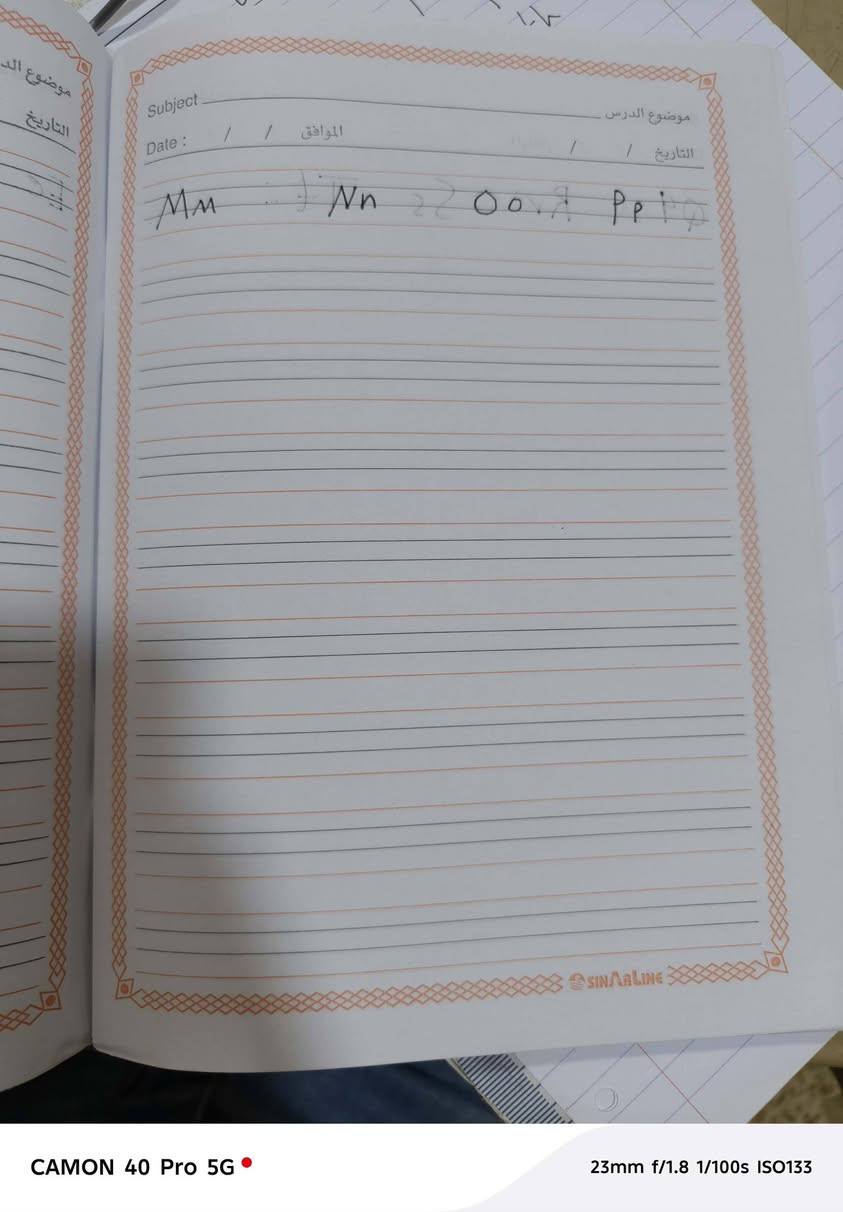 Subject موضوع الدرس
Date : / / الموافق / / التاريخ
Mm Nn Oo Pp
SINARLINE
موضوع الد
التاريخ
CAMON 40 Pro 5G
23mm f/1.8 1/100s ISO133